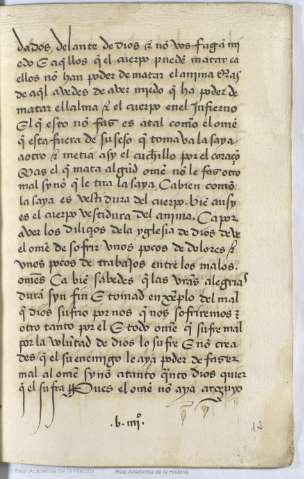 dados, delante de dios & nõ vos faga mi
edo Ɛ aq̃llos q̃ el cuerpo puedẽ matar ca
ellos nõ han poder de matar el anima Mas
de aq̃l avedes de aver miedo q̃ ha poder de
matar ell alma & el cuerpo en el Infierno
El q̃ esto nõ faz es atal como el omẽ
q̃ esta fuera de su seso q̃ tomava la saya
a otro & metia a sy el cuchillo por el coraçõ
Mas el q̃ mata algũd omẽ nõ le faz otro
mal sy nõ q̃ le tira la saya Ca bien como
la saya es vestidura del cuerpo bie ansy
es el cuerpo vestidura del anima. Ca por
aver los dela yglesia de dios deve
el omẽ de sofrir unos pocos de dolores &
unos pocos de trabajos entre los malos
omẽs Ca biẽ sabedes q̃ las vr̃as alegrias
durã syn fin Ɛ tomad enxẽplo del mal
q̃ dios sufrio por nos q̃ nos sofriremos &
otro tanto por el Ɛ todo omẽ q̃ sufre mal
por la volũtad de dios lo sufre Ɛ nõ crea
des q̃ el su enemigo le aya poder de fazer
mal al omẽ sy nõ atanto q̃nto dios quier
q̃ el sufra Pues el omẽ nõ aya
.b. iiijº.
12
Real Academia de la Historia
Real Academia de la Historia